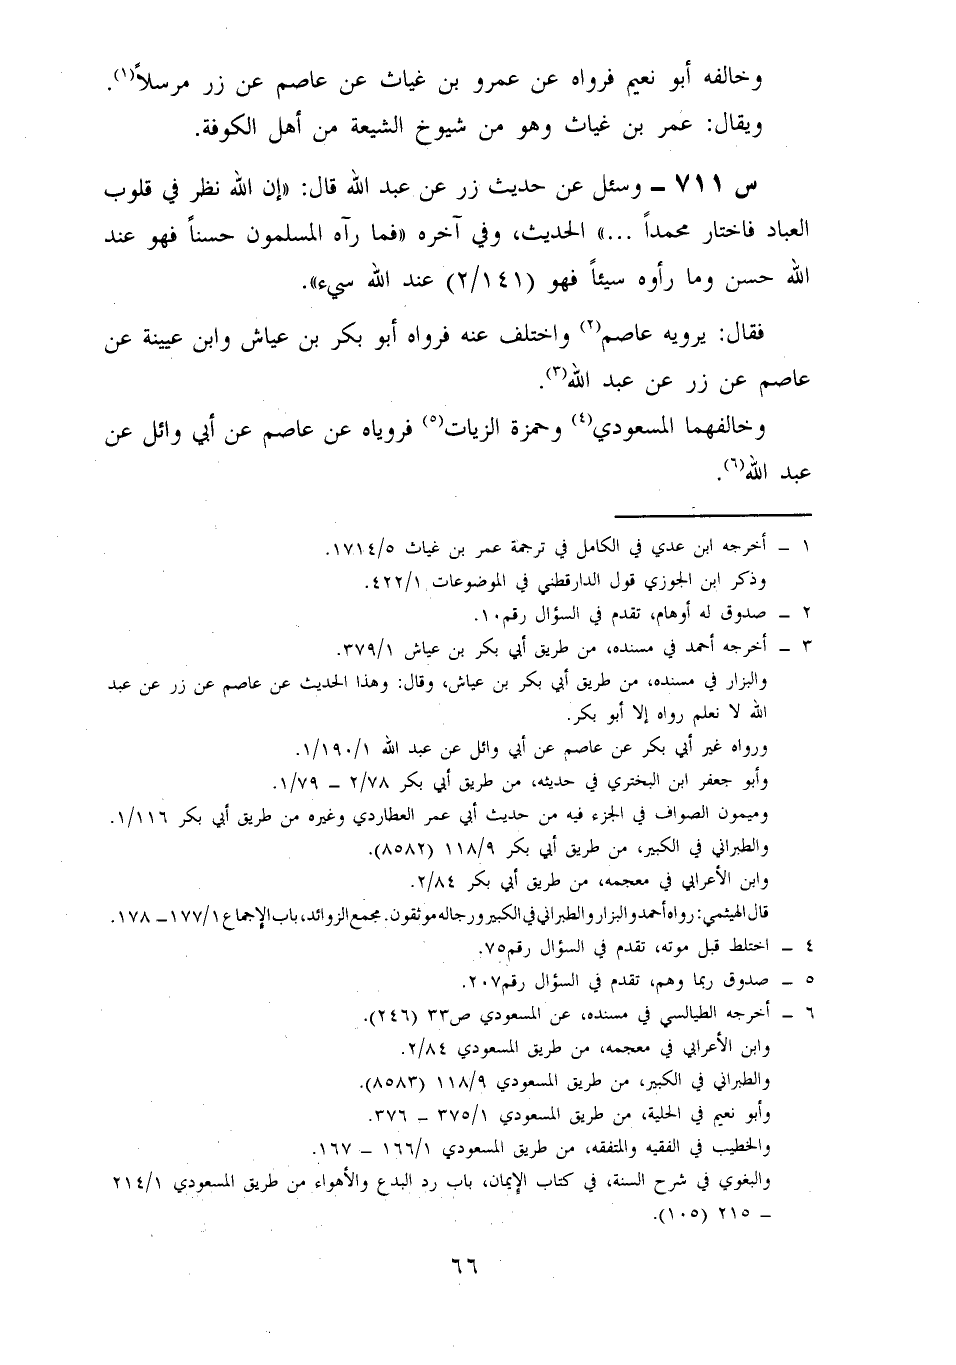 وخالفه أبو نعيم فرواه عن عمرو بن غياث عن عاصم عن زر مرسلاً(١).
ويقال: عمر بن غياث وهو من شيوخ الشيعة من أهل الكوفة.
س ٧١١ ــ وسئل عن حديث زر عن عبد الله قال: «إن الله نظر في قلوب
العباد فاختار محمداً ...» الحديث، وفي آخره «فما رآه المسلمون حسناً فهو عند
الله حسن وما رأوه سيئاً فهو (٢/١٤١) عند الله سيء».
فقال: يرويه عاصم(٢) واختلف عنه فرواه أبو بكر بن عياش وابن عيينة عن
عاصم عن زر عن عبد الله(٣).
وخالفهما المسعودي(٤) وحمزة الزيات(٥) فروياه عن عاصم عن أبي وائل عن
عبد الله(٦).
١ ــ أخرجه ابن عدي في الكامل في ترجمة عمر بن غياث ١٧١٤/٥.
وذكر ابن الجوزي قول الدارقطني في الموضوعات ٤٢٢/١.
٢ ــ صدوق له أوهام، تقدم في السؤال رقم١٠.
٣ ــ أخرجه أحمد في مسنده، من طريق أبي بكر بن عياش ٣٧٩/١.
والبزار في مسنده، من طريق أبي بكر بن عياش، وقال: وهذا الحديث عن عاصم عن زر عن عبد
الله لا نعلم رواه إلا أبو بكر.
ورواه غير أبي بكر عن عاصم عن أبي وائل عن عبد الله ١/١٩٠/١.
وأبو جعفر ابن البختري في حديثه، من طريق أبي بكر ٢/٧٨ ــ ١/٧٩.
وميمون الصواف في الجزء فيه من حديث أبي عمر العطاردي وغيره من طريق أبي بكر ١/١١٦.
والطبراني في الكبير، من طريق أبي بكر ١١٨/٩ (٨٥٨٢).
وابن الأعرابي في معجمه، من طريق أبي بكر ٢/٨٤.
قال الهيثمي: رواه أحمد والبزار والطبراني في الكبير ورجاله موثقون. مجمع الزوائد، باب الإجماع ١٧٧/١ــ ١٧٨.
٤ ــ اختلط قبل موته، تقدم في السؤال رقم٧٥.
٥ ــ صدوق ربما وهم، تقدم في السؤال رقم٢٠٧.
٦ ــ أخرجه الطيالسي في مسنده، عن المسعودي ص٣٣ (٢٤٦).
وابن الأعرابي في معجمه، من طريق المسعودي ٢/٨٤.
والطبراني في الكبير، من طريق المسعودي ١١٨/٩ (٨٥٨٣).
وأبو نعيم في الحلية، من طريق المسعودي ٣٧٥/١ ــ ٣٧٦.
والخطيب في الفقيه والمتفقه، من طريق المسعودي ١٦٦/١ ــ ١٦٧.
والبغوي في شرح السنة، في كتاب الإيمان، باب رد البدع والأهواء من طريق المسعودي ٢١٤/١
ــ ٢١٥ (١٠٥).
٦٦